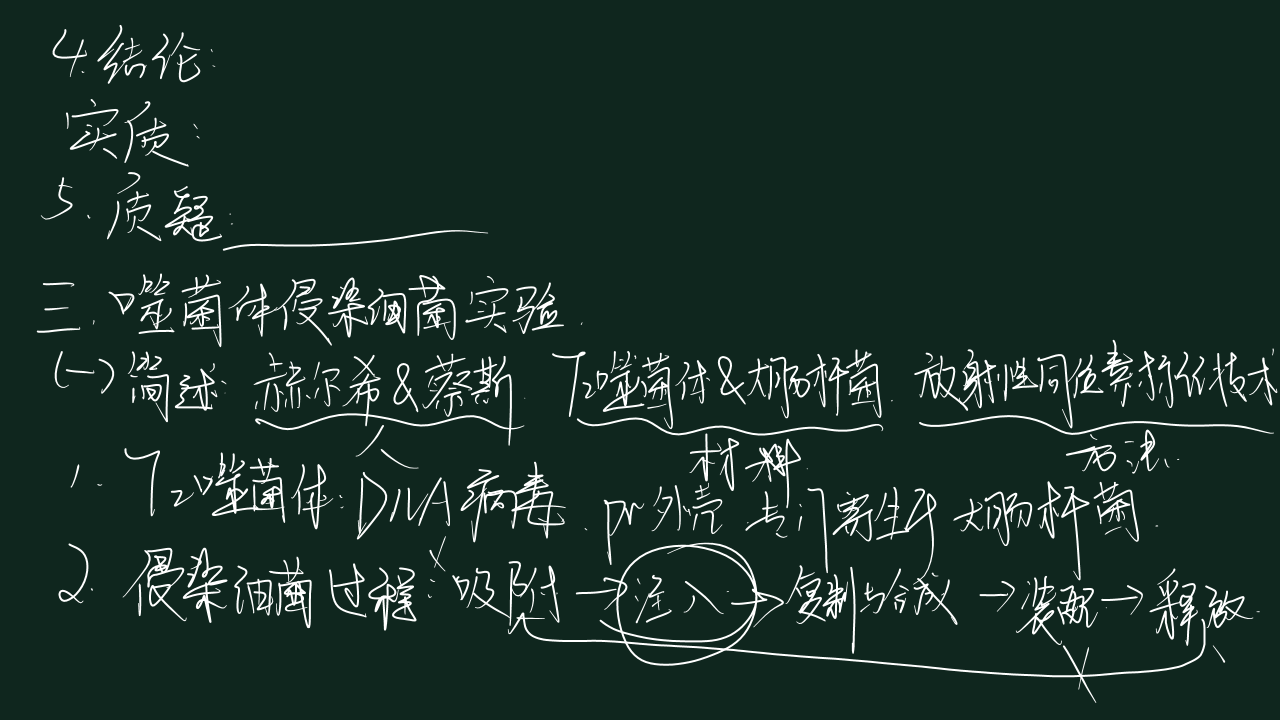 4.结论:
实质:
5.质疑:
三.噬菌体侵染细菌实验.
(一)简述:赫尔希&蔡斯 T2噬菌体&大肠杆菌. 放射性同位素标记技术
人 材料. 方法.
1. T2噬菌体:DNA病毒. pr外壳 专门寄生于大肠杆菌.
2. 侵染细菌过程:吸附→注入→复制与合成→装配→释放.